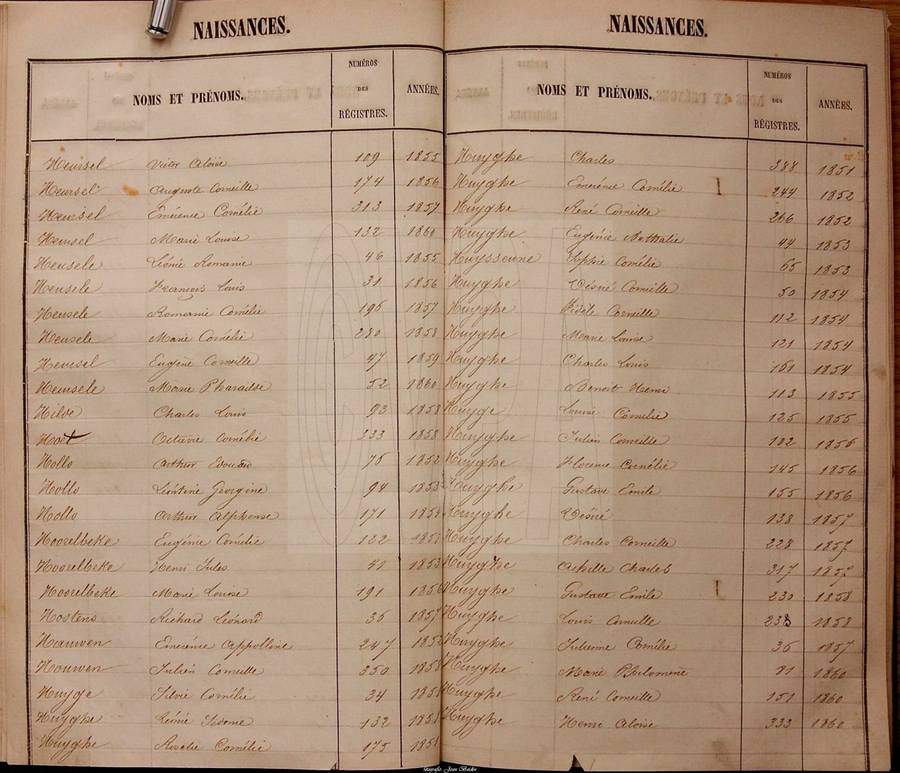 NAISSANCES.
NOMS ET PRÉNOMS. NUMÉROS DES RÉGISTRES. ANNÉES.
Heursel Victor Aloïse 109 1855
Heursel Auguste Corneille 174 1856
Heursel Emérence Cornélie 313 1857
Heursel Marie Louise 132 1860
Heusele Léonie Romanie 46 1855
Heusele François Louis 31 1856
Heusele Romanie Cornélie 196 1857
Heusele Marie Cornélie 280 1858
Heusel Eugène Corneille 47 1859
Heusele Marie Pharaïlde 52 1860
Charles Louis 93 1853
Octavie Cornélie 233 1858
Hollo Arthur Edouard 75 1852
Hollo Léontine Georgine 94 1853
Hollo Arthur Alphonse 171
Hoorelbeke Eugénie Cornélie 122
Hoorelbeke Henri Jules 1853
Hoorelbeke Marie Louise 191 1856
Hostens Richard Léonard 36 1857
Hauwen Emérence Appolline 247 1852
Houwen Julien Corneille 350 1858
Huyge Silvie Cornélie 34
Huyghe Léonie 132 1851
Huyghe Rosalie Cornélie 175 1851
NAISSANCES.
NOMS ET PRÉNOMS. NUMÉROS DES RÉGISTRES. ANNÉES.
Huyghe Charles 388 1851
Huyghe Emérence Cornélie 244 1852
Huyghe René Corneille 266 1852
Huyghe Eugénie Nathalie 44 1853
Huysseune Sophie Cornélie 65 1853
Huyghe Désiré Corneille 50 1854
Huyghe Fidèle Corneille 112 1854
Huyghe Marie Louise 121 1854
Huyghe Charles Louis 161 1854
Huyghe Benoit Henri 113 1855
Huyge Louise Cornélie 125 1855
Huyghe Julien Corneille 102 1856
Huyghe Florence Cornélie 145 1856
Huyghe Gustave Emile 155 1856
Huyghe Désiré 138 1857
Huyghe Charles Corneille 228 1857
Huyghe Achille Charles 317 1857
Huyghe Gustave Emile 230 1858
Huyghe Louis Corneille 238 1858
Huyghe Julienne Cornélie 36 1857
Huyghe Marie Philomène 91 1860
Huyghe René Corneille 151 1860
Huyghe Henri Aloïse 333 1860